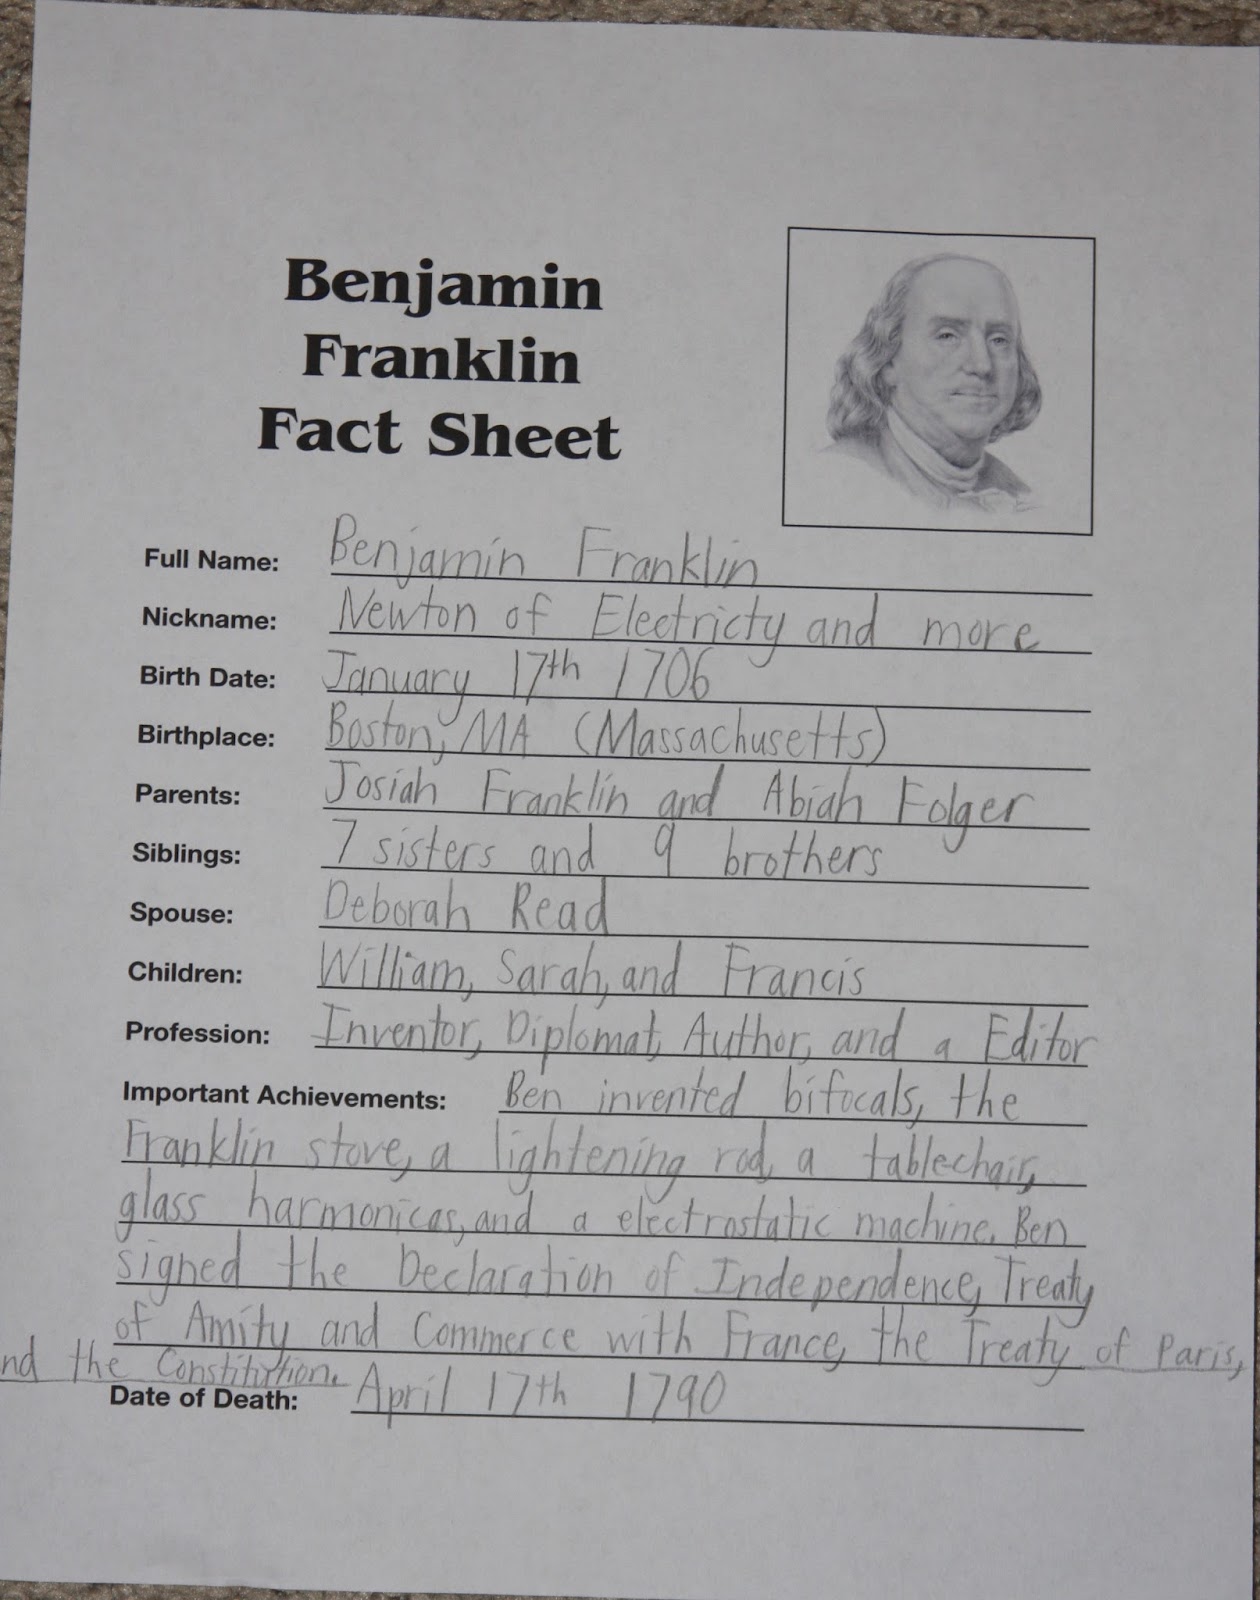 Benjamin
Franklin
Fact Sheet
Full Name: Benjamin Franklin
Nickname: Newton of Electricty and more
Birth Date: January 17th 1706
Birthplace: Boston, MA (Massachusetts)
Parents: Josiah Franklin and Abiah Folger
Siblings: 7 sisters and 9 brothers
Spouse: Deborah Read
Children: William, Sarah, and Francis
Profession: Inventor, Diplomat, Author, and a Editor
Important Achievements: Ben invented bifocals, the
Franklin stove, a lightening rod, a tablechair,
glass harmonicas, and a electrostatic machine. Ben
signed the Declaration of Independence, Treaty
of Amity and Commerce with France, the Treaty of Paris,
nd the Constitution.
Date of Death: April 17th 1790